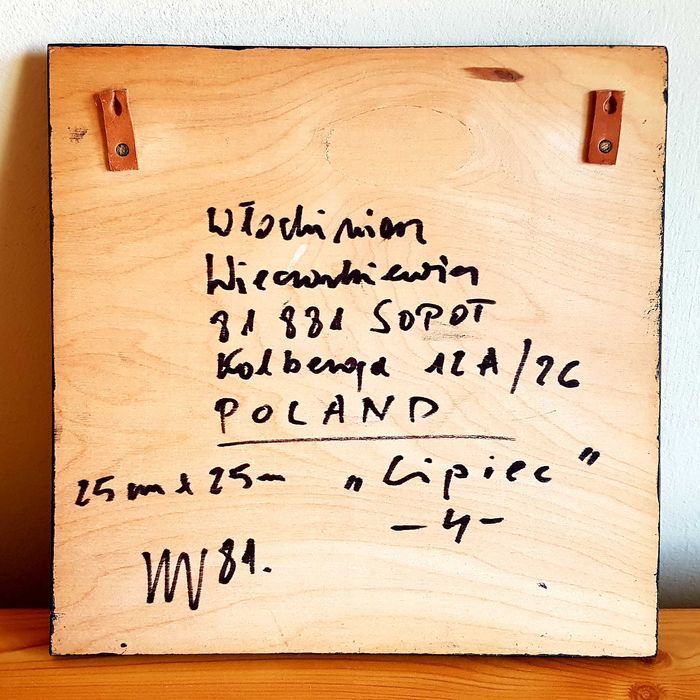 Włodzimierz
Więckowkiewicz
81 881 SOPOT
Kolberga 12A/26
POLAND
25cm x 25cm „Lipiec”
-4-
81.